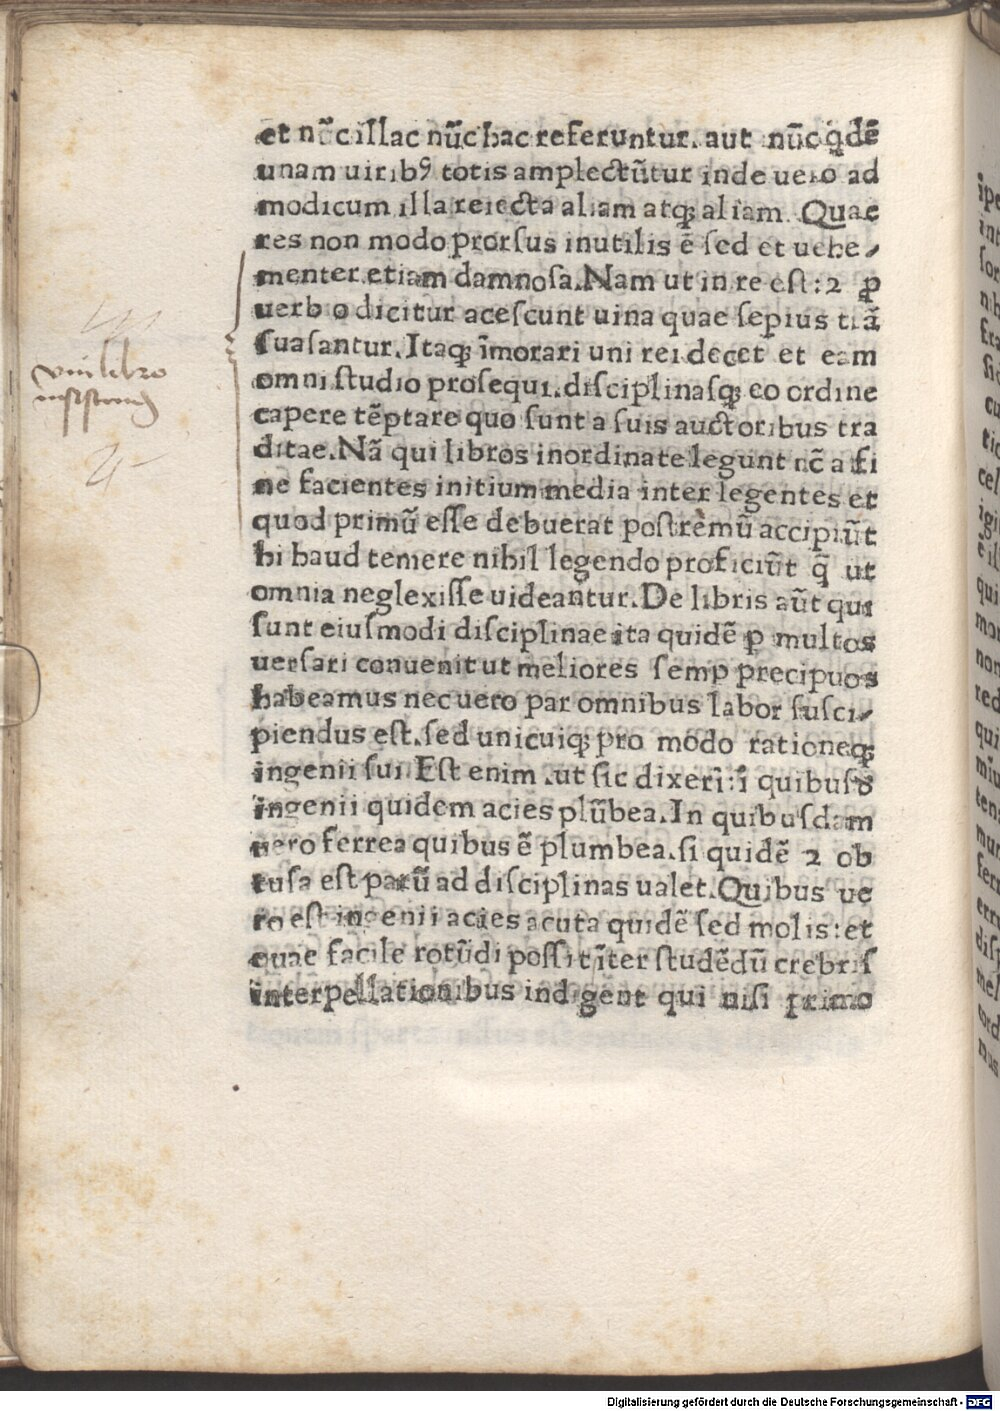 et nūc illac nūc hac referuntur. aut nūc q̄dē
unam uiribꝰ totis amplectūtur inde uero ad
modicum illa reiecta aliam atqꝫ aliam. Quae
res non modo prorſus inutilis ē ſed et uehe⸗
menter etiam damnosa. Nam ut in re eſt: ꝛ ꝓ
uerbio dicitur aceſcunt uina quae ſepius trā
ſuaſantur. Itaqꝫ īmorari uni rei decet et eam
omni ſtudio proſequi. diſciplinaſqꝫ eo ordine
capere tēptare quo ſunt a ſuis auctoribus tra
ditae. Nā qui libros inordinate legunt nc̄ a fi
ne facientes initium media inter legentes et
quod primū eſſe debuerat poſtremū accipiūt
hi haud temere nihil legendo proficiūt q̄ ut
omnia neglexiſſe uideantur. De libris aūt qui
ſunt eiuſmodi diſciplinae ita quidē ꝑ multos
uerſari conuenit ut meliores ſemꝑ precipuos
habeamus nec uero par omnibus labor ſuſci⸗
piendus eſt. ſed unicuiqꝫ pro modo rationeqꝫ
ingenii ſui. Eſt enim .ut ſic dixerī: ī quibuſꝺ
ingenii quidem acies plūbea. In quibuſdam
uero ferrea quibus ē plumbea. ſi quidē ꝛ ob
tuſa eſt parū ad diſciplinas ualet. Quibus ue
ro eſt ingenii acies acuta quidē ſed molis: et
quae facile rotūdi poſſit īter ſtudēdū crebriſ
interpellationibus indigent qui niſi primo
vni libro
Digitalisierung gefördert durch die Deutsche Forschungsgemeinschaft - DFG